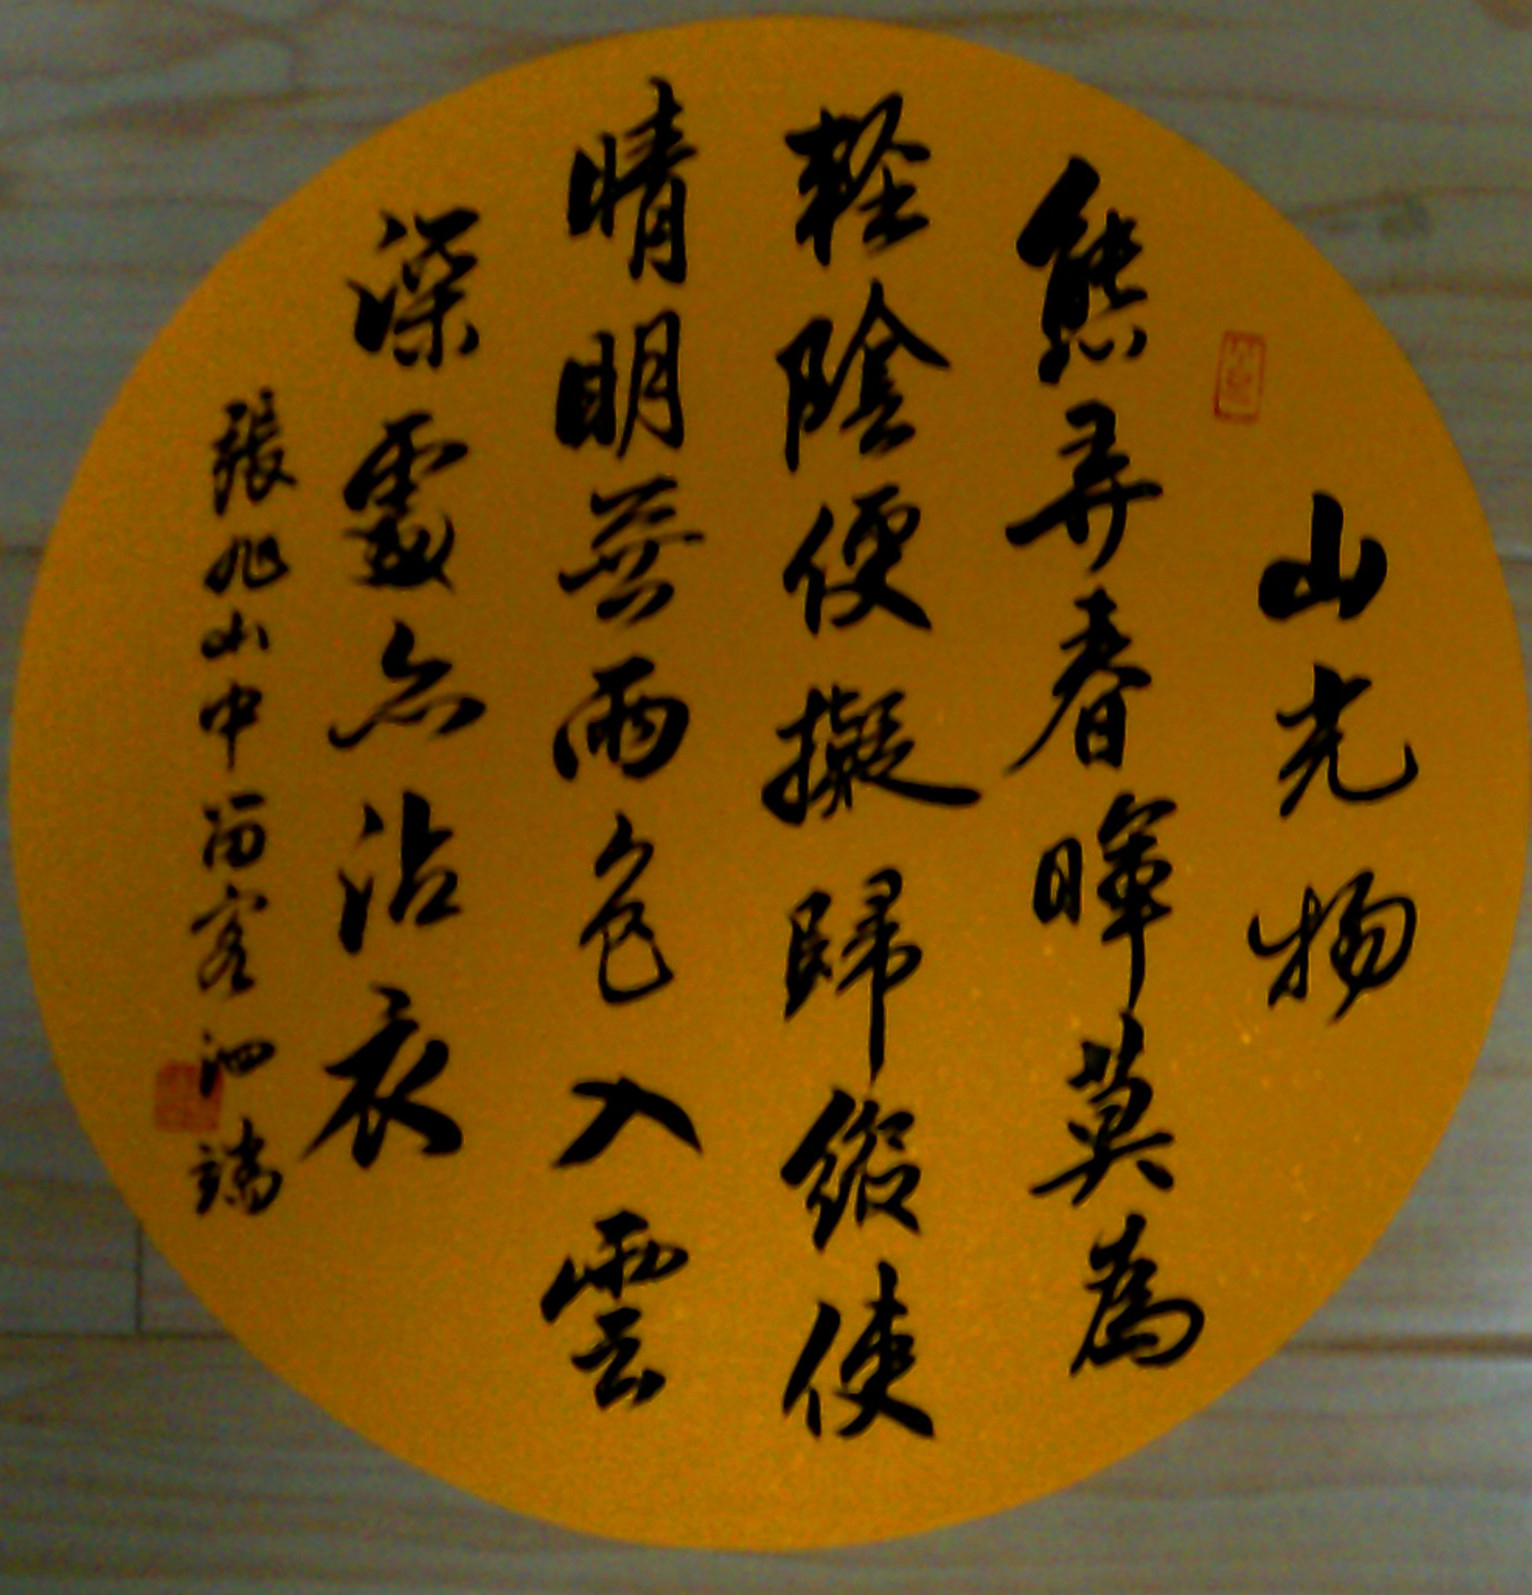 山光物
態弄春暉莫為
輕陰便擬歸縱使
晴明無雨色入雲
深處亦沾衣
張旭山中留客泗端